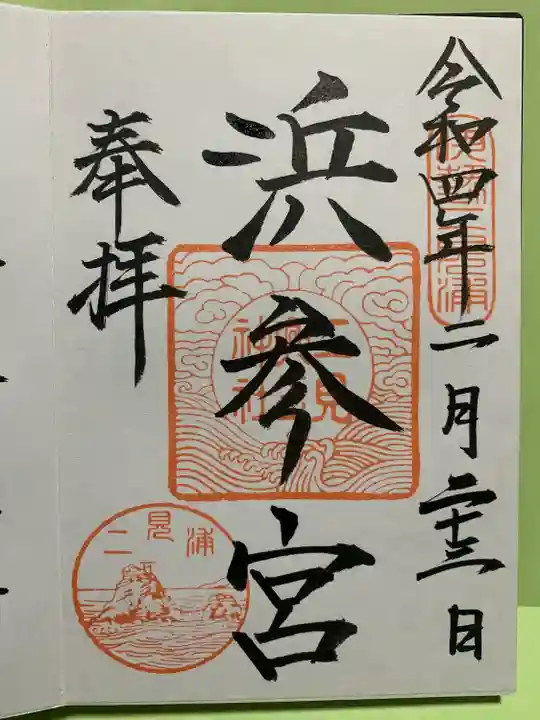 令和四年二月二十三日
伊勢二見浦
浜参宮
二見興玉神社
奉拝
二見浦